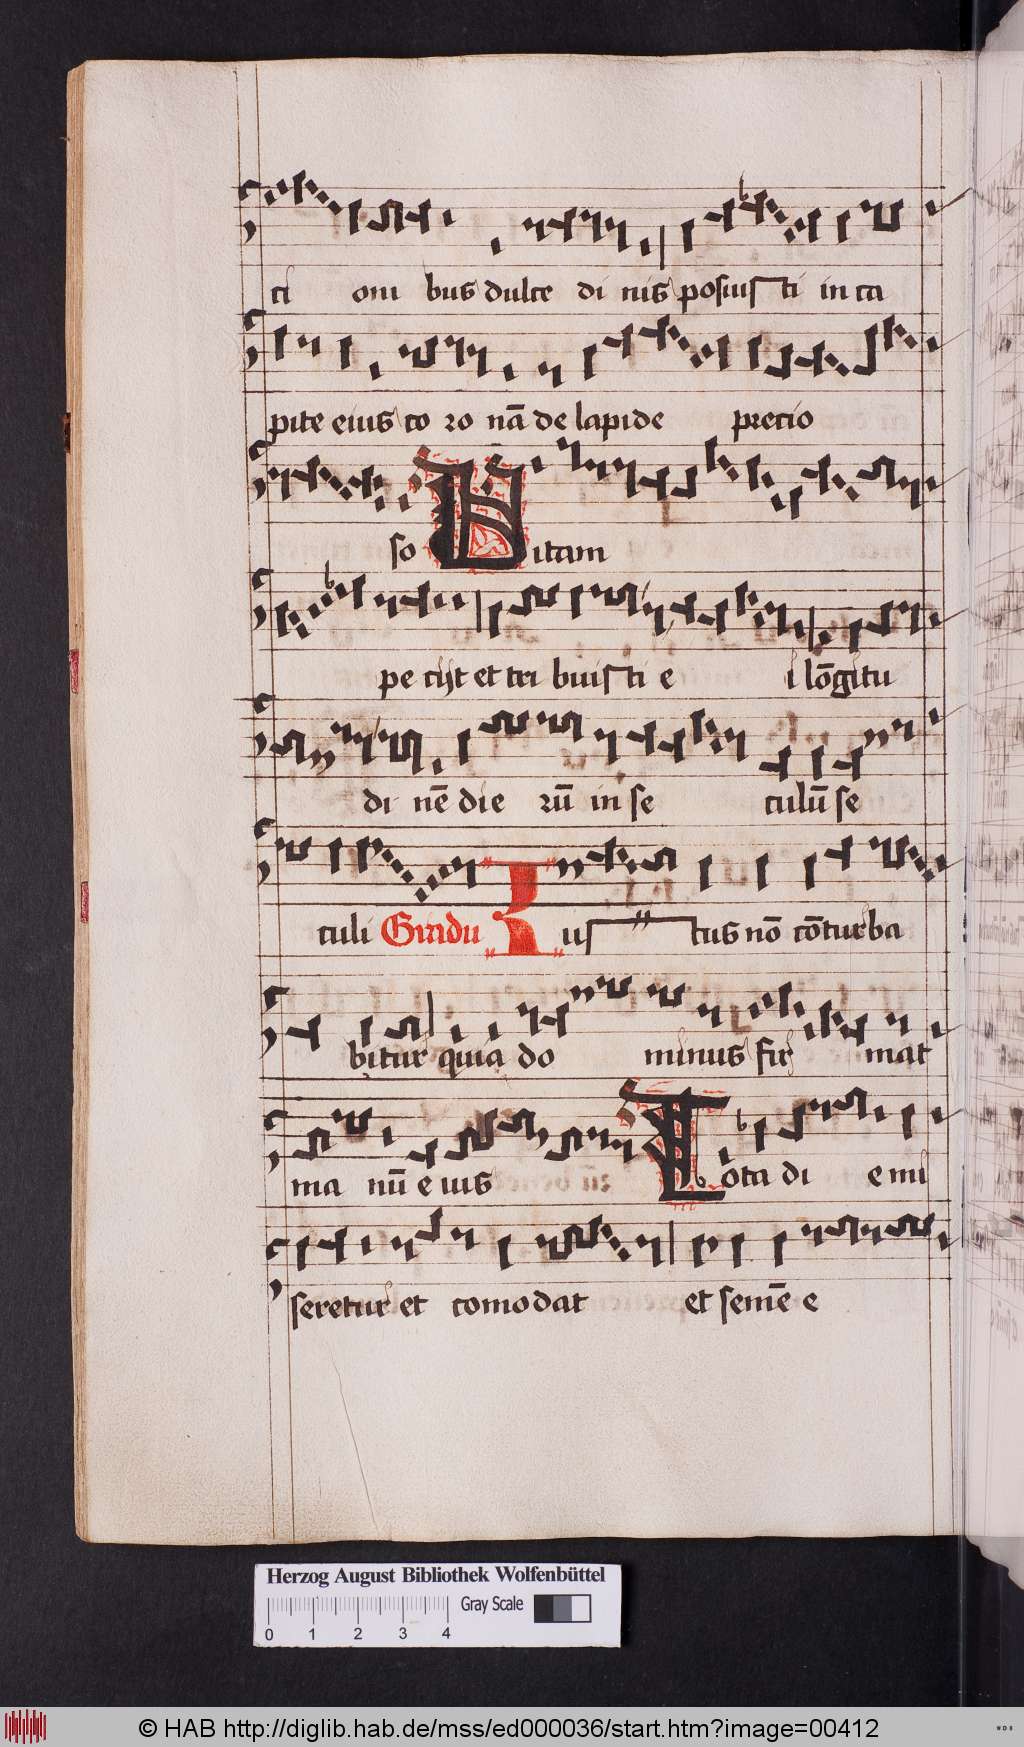 ti oni bus dulce di nis posuis ti in ca
pite eius co ro nā de lapide precio
so Vitam
pe cijt et tri buis ti e i lōgitu
di nē die rū in se culū se
culi Gradu Ius tus nō cōturba
bitur quia do minus fir mat
ma nū e ius Tota di e mi
seretur et comodat et semē e
Herzog August Bibliothek Wolfenbüttel
Gray Scale
0 1 2 3 4
© HAB http://diglib.hab.de/mss/ed000036/start.htm?image=00412